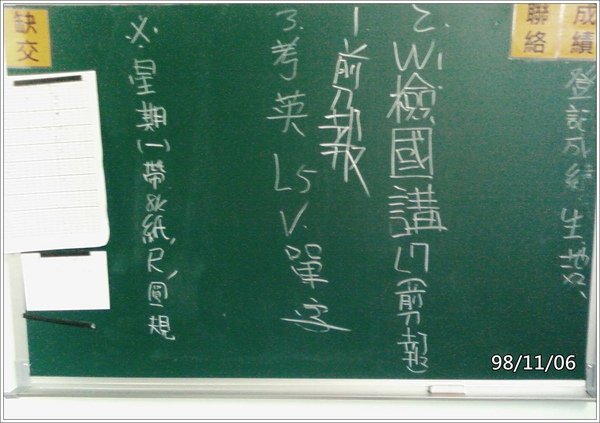 成績
聯絡
缺交
登記成績 生物、
2. W: 檢國講L7(剪報)
1 剪報
3. 考英 L5 V. 單字
※. 星期(一)帶 紙,尺,圓規
98/11/06